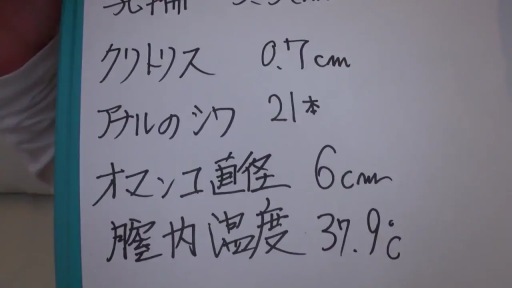 乳輪 3.5cm
クリトリス 0.7cm
アナルのシワ 21本
オマンコ直径 6cm
膣内温度 37.9℃